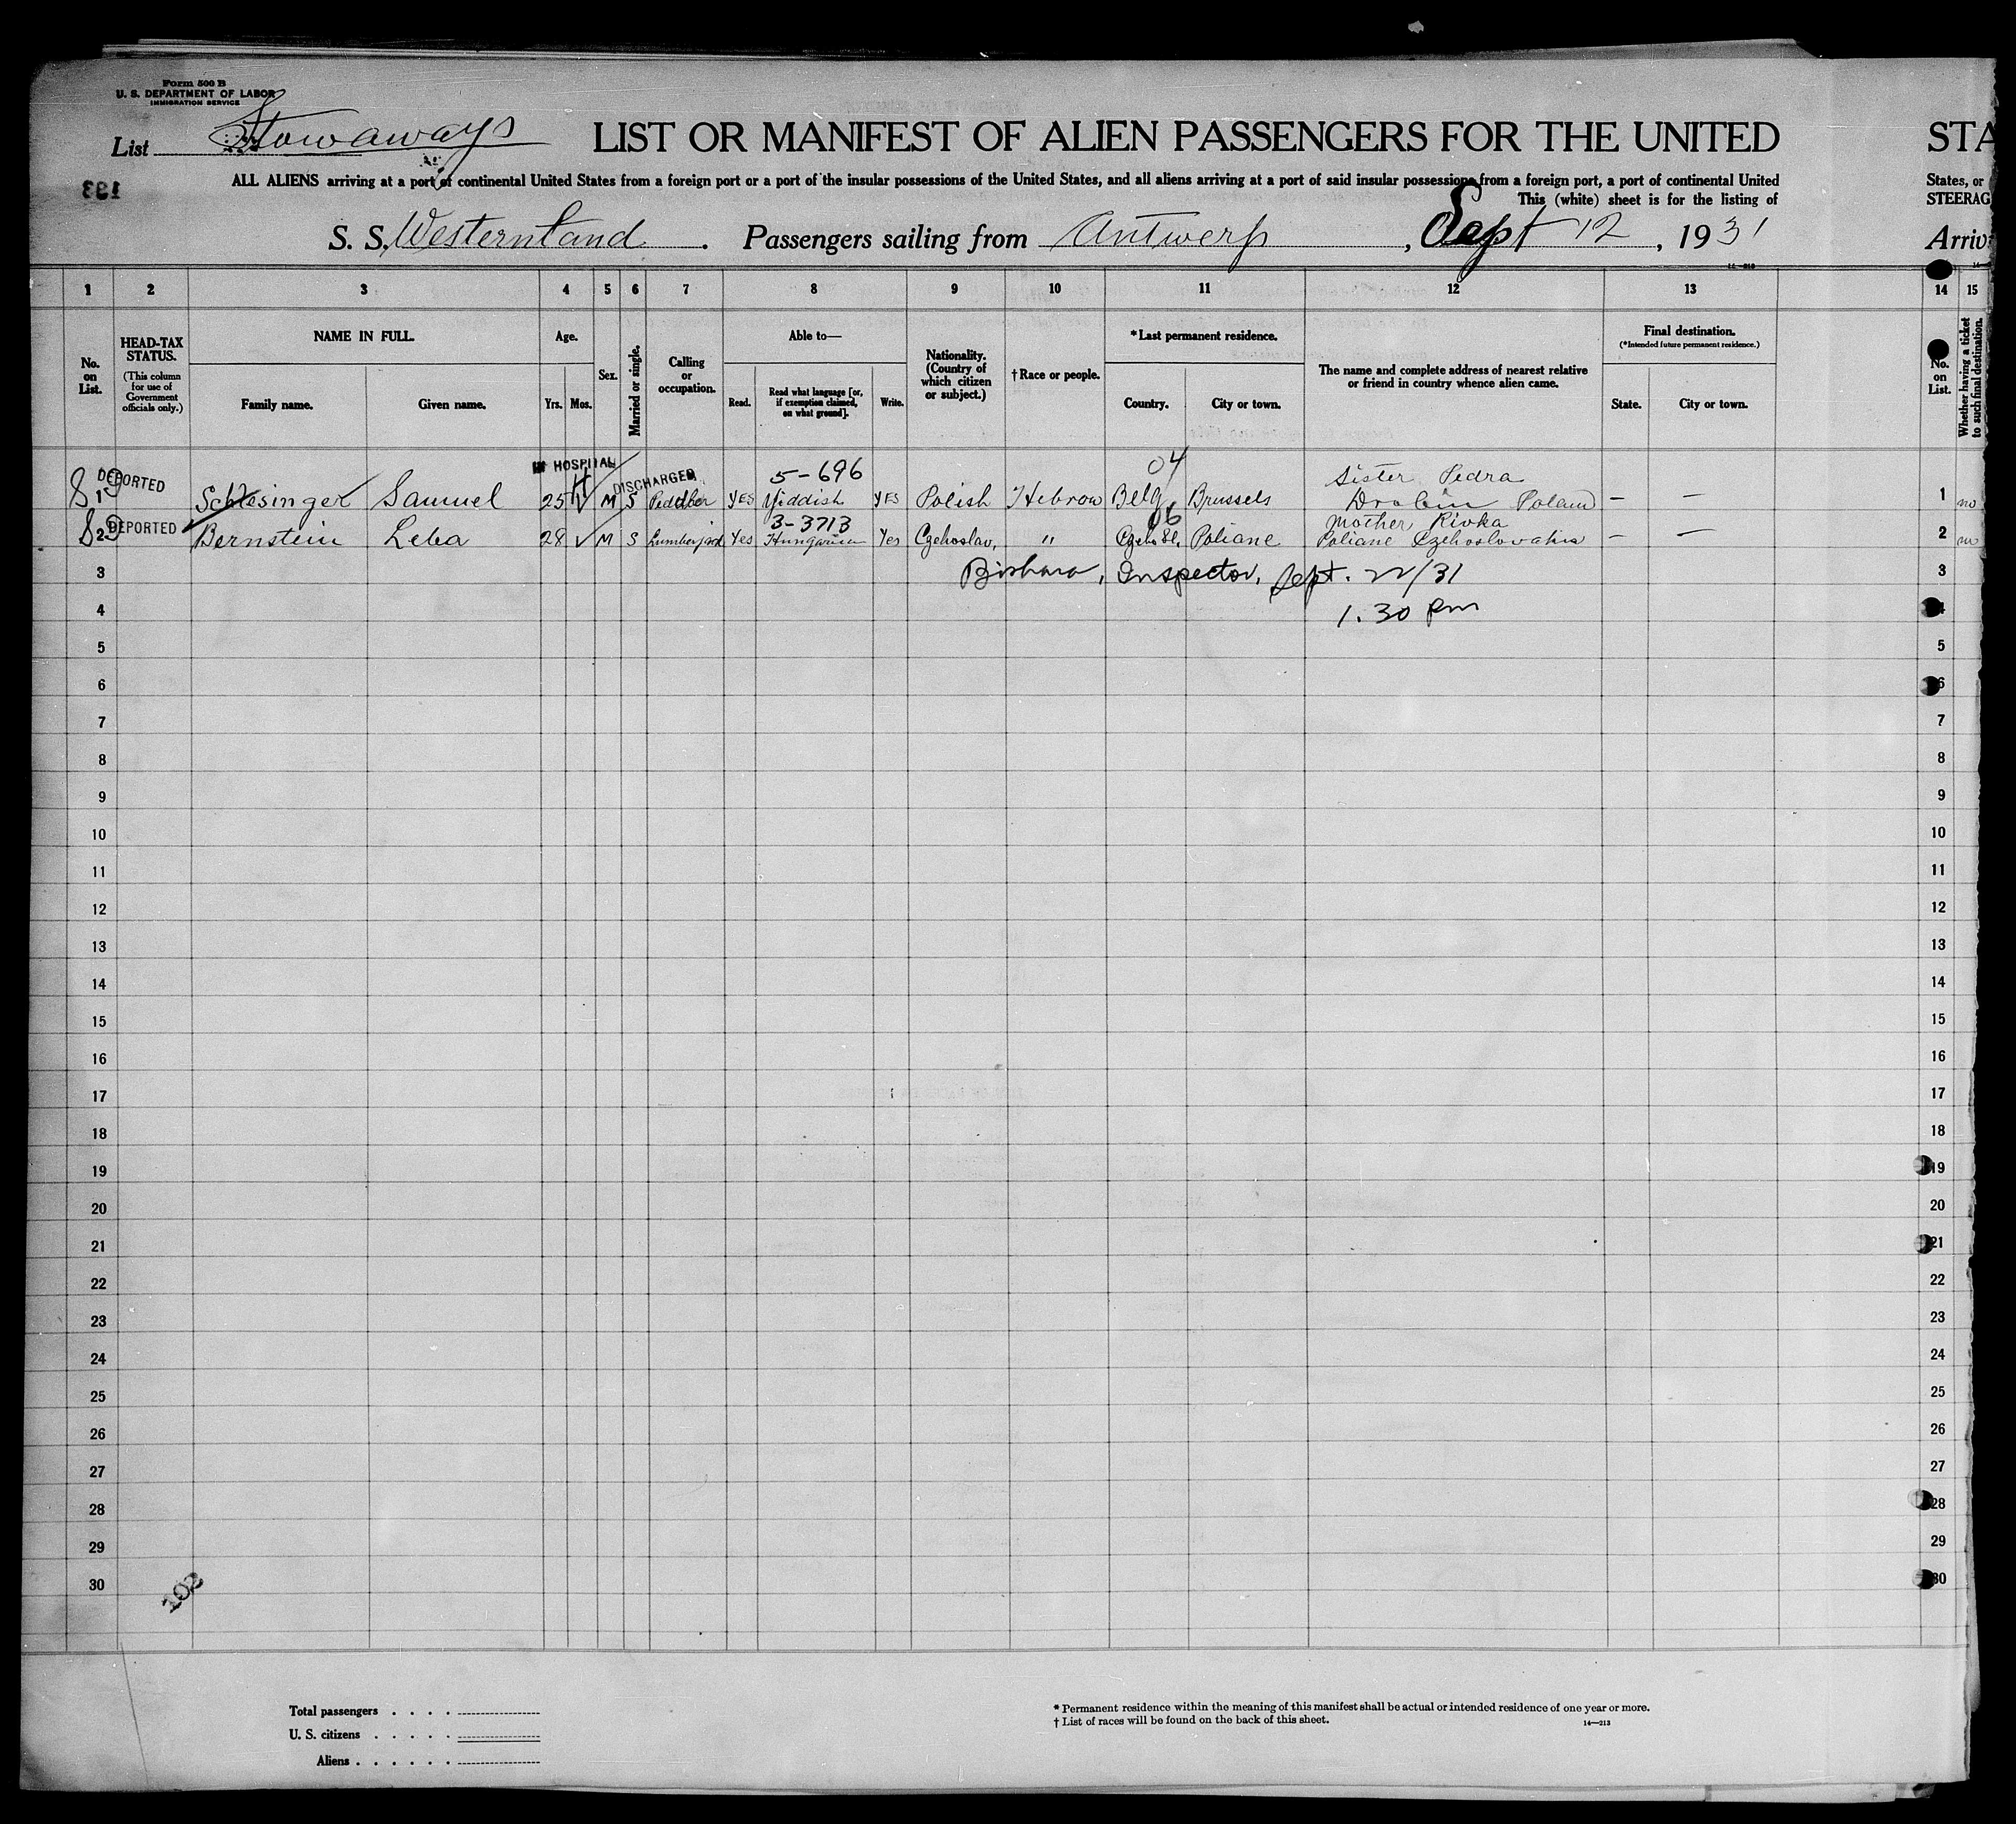 Form 500 B
U. S. DEPARTMENT OF LABOR
IMMIGRATION SERVICE
List Stowaways
LIST OR MANIFEST OF ALIEN PASSENGERS FOR THE UNITED STA
193
ALL ALIENS arriving at a port of continental United States from a foreign port or a port of the insular possessions of the United States, and all aliens arriving at a port of said insular possessions from a foreign port, a port of continental United States, or
This (white) sheet is for the listing of STEERAG
S. S. Westernland . Passengers sailing from Antwerp , Sept 12 , 1931 Arriv
14—213
1 2 3 4 5 6 7 8 9 10 11 12 13 14 15
No. on List.
HEAD-TAX STATUS.
(This column for use of Government officials only.)
NAME IN FULL.
Family name. Given name.
Age.
Yrs. Mos.
Sex.
Married or single.
Calling or occupation.
Able to—
Read. Read what language [or, if exemption claimed, on what ground]. Write.
Nationality. (Country of which citizen or subject.)
† Race or people.
* Last permanent residence.
Country. City or town.
The name and complete address of nearest relative or friend in country whence alien came.
Final destination.
(* Intended future permanent residence.)
State. City or town.
No. on List.
Whether having a ticket to such final destination.
HOSPITAL DISCHARGED 5-696 04 Sister Pedra
1 DEPORTED Schlesinger Samuel 25 M S Peddler YES Yiddish YES Polish Hebrew Belg Brussels Poland — — 1 no
3-3713 06 Mother Rivka
2 DEPORTED Bernstein Leba 28 M S Lumberjack Yes Hungarian Yes Czehoslav, " Czeho Sl. Poliane Poliane Czehoslovakia — — 2 no
3 Inspector, Sept. 22/31 3
4 1.30 pm 4
5 5
6 6
7 7
8 8
9 9
10 10
11 11
12 12
13 13
14 14
15 15
16 16
17 17
18 18
19 19
20 20
21 21
22 22
23 23
24 24
25 25
26 26
27 27
28 28
29 29
30 30
102
Total passengers . . . .
U. S. citizens . . . . .
Aliens . . . . . .
* Permanent residence within the meaning of this manifest shall be actual or intended residence of one year or more.
† List of races will be found on the back of this sheet.
14—213